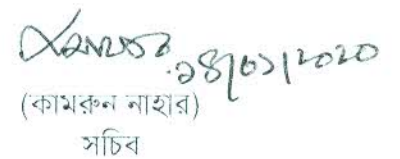 ১৪/০১/২০২০
(কামরুন নাহার)
সচিব